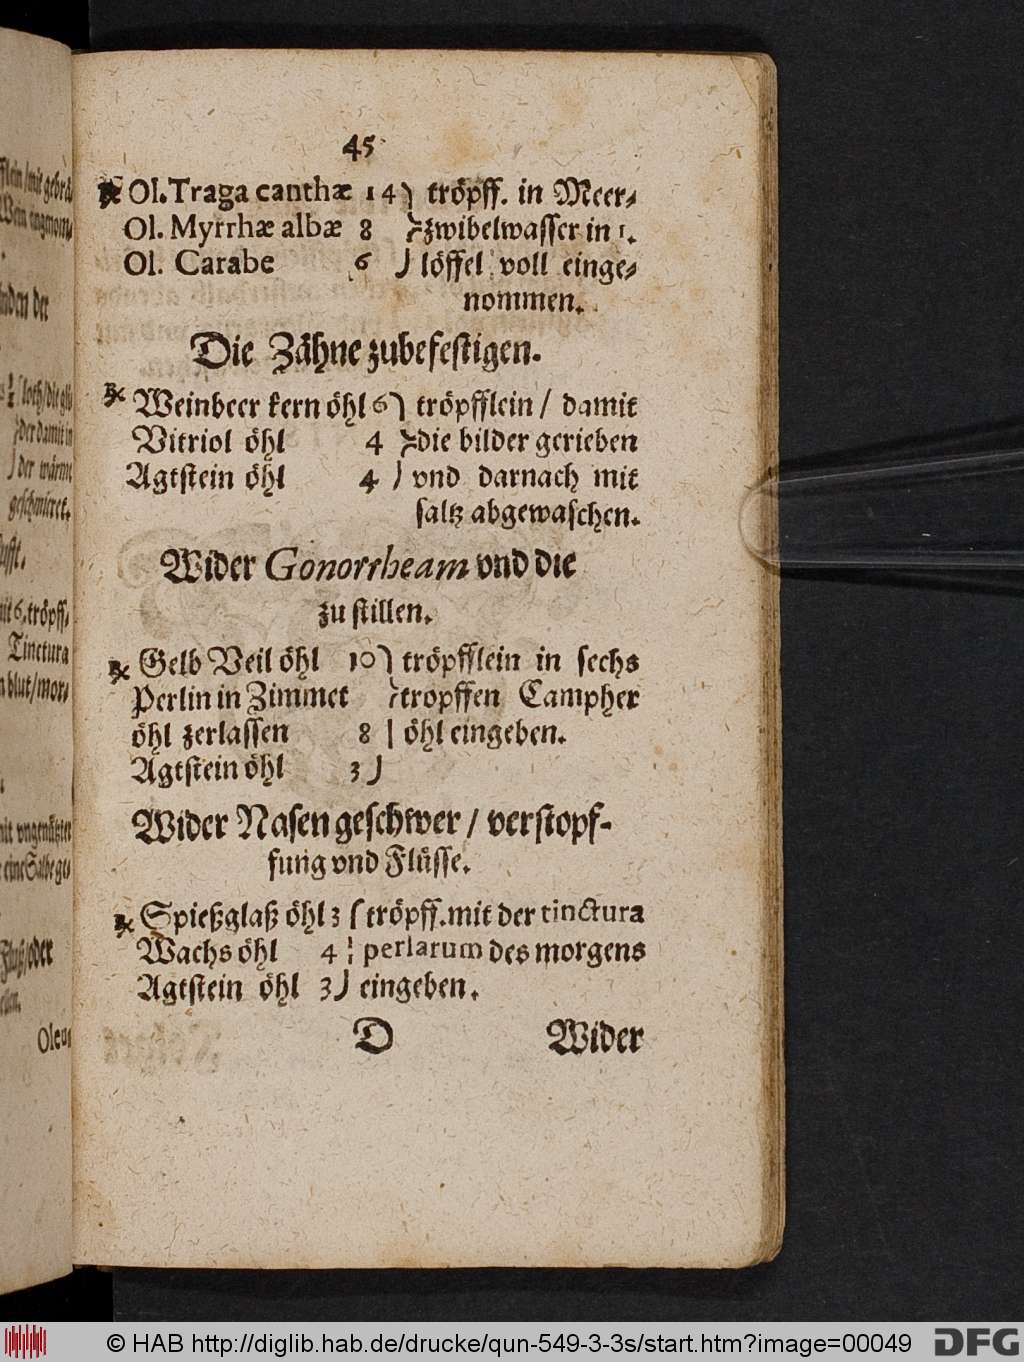 45
℞ Ol. Tragacanthæ 14 } tröpff. in Meer-
Ol. Myrrhæ albæ 8 } zwibelwasser in 1.
Ol. Carabe 6 } löffel voll einge-
nommen.
Die Zähne zubefestigen.
℞ Weinbeer kern öhl 6 } tröpfflein / damit
Vitriol öhl 4 } die bilder gerieben
Agtstein öhl 4 } vnd darnach mit
saltz abgewaschen.
Wider Gonorrheam vnd die
zu stillen.
℞ Gelb Veil öhl 10 } tröpfflein in sechs
Perlin in Zimmet } tropffen Campher
öhl zerlassen 8 | öhl eingeben.
Agtstein öhl 3 }
Wider Nasen geschwer / verstopf-
fung vnd Flüsse.
℞ Spießglaß öhl 3 { tröpff. mit der tinctura
Wachs öhl 4 | perlarum des morgens
Agtstein öhl 3 } eingeben.
D Wider
© HAB http://diglib.hab.de/drucke/qun-549-3-3s/start.htm?image=00049 DFG